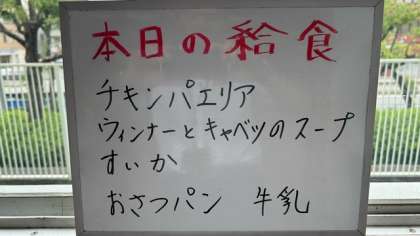 本日の給食
チキンパエリア
ウィンナーとキャベツのスープ
すいか
おさつパン 牛乳